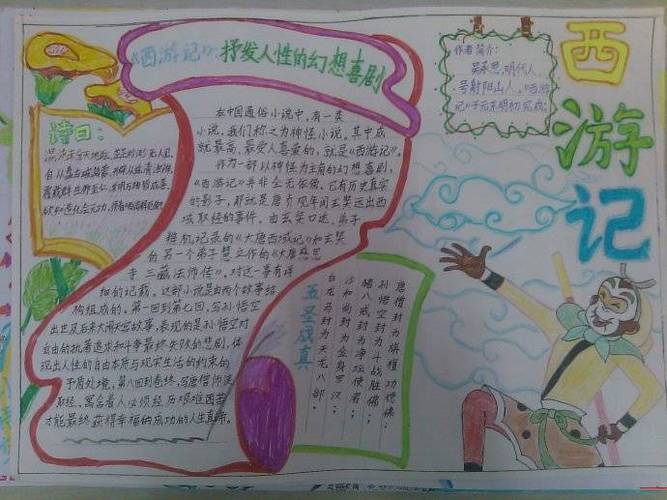 《西游记》：抒发人性的幻想喜剧
作者简介：
吴承恩，明代人，
号射阳山人。《西游
记》于元末明初完成。
西
游
记
诗曰：
混沌未分天地乱，茫茫渺渺无人见。
自从盘古破鸿蒙，开辟从兹清浊辨。
覆载群生仰至仁，发明万物皆成善。
欲知造化会元功，须看西游释厄传。
在中国通俗小说中，有一类
小说，我们称之为神怪小说，其中成
就最高，最受人喜爱的，就是《西游记》。
作为一部以神怪为主角的幻想喜剧，
《西游记》并非全无依据，它有历史真实
的影子，那就是唐贞观年间玄奘远出西
域取经的事件。由玄奘口述，弟子
辩机记录的《大唐西域记》和玄奘
的另一个弟子慧立作的《大唐慈恩
寺三藏法师传》，对这一事有详
细的记载。这部小说是由两个故事结
构组成的。第一回到第七回，写孙悟空
出世及后来大闹天宫故事，表现的是孙悟空对
自由的执著追求和斗争最终失败的悲剧，体
现出人性的自由本质与现实生活的约束的
矛盾处境，第八回到卷终，写唐僧师徒
取经，寓含着人必须经历艰难困苦
才能最终获得幸福的成功的人生真谛。
唐僧封为旃檀功德佛
孙悟空封为斗战胜佛
猪八戒封为净坛使者
沙和尚封为金身罗汉
白龙马封为天龙八部
五圣成真